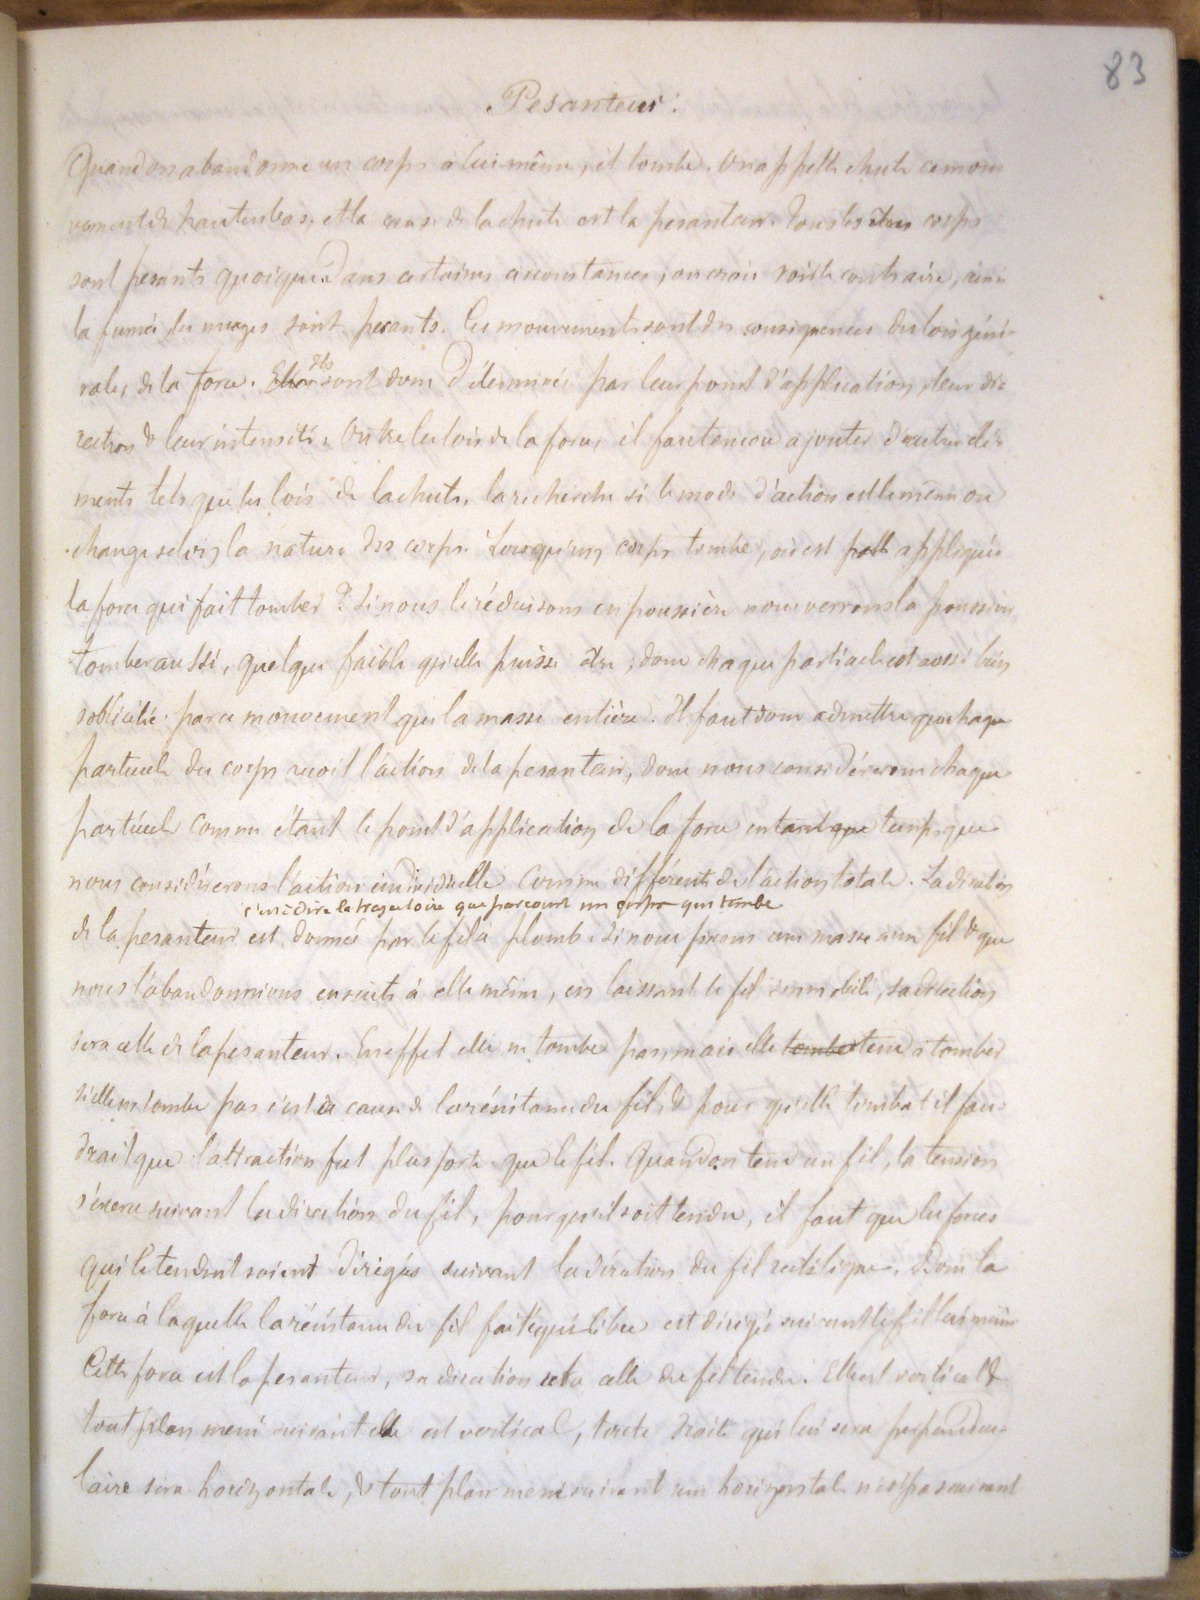 83
Pesanteur.
Quand on abandonne un corps à lui-même, il tombe. On appelle chute ce mou-
vement de haut en bas, et la cause de la chute est la pesanteur. Tous les corps
sont pesants quoique dans certaines circonstances, on croie voir le contraire, ainsi
la fumée, les nuages sont pesants. Ces mouvements sont des conséquences des lois géné-
rales de la force. Ils sont donc déterminés par leur point d'application, leur di-
rection & leur intensité. Outre les lois de la force, il faut encore ajouter d'autres élé-
ments tels que les lois de la chute, la recherche si le mode d'action est le même ou
change selon la nature des corps. Lorsqu'un corps tombe, où est appliquée
la force qui fait tomber ? Si nous le réduisons en poussière nous verrons la poussière
tomber aussi, quelque faible qu'elle puisse être, donc chaque particule est aussi bien
sollicitée par ce mouvement que la masse entière. Il faut donc admettre que chaque
particule du corps reçoit l'action de la pesanteur, donc nous considérerons chaque
particule comme étant le point d'application de la force en tant que temps que
nous considérerons l'action individuelle comme différente de l'action totale. La direction
c'est à dire la trajectoire que parcourt un corps qui tombe
de la pesanteur est donnée par le fil à plomb. Si nous fixons une masse à un fil & que
nous l'abandonnions ensuite à elle même, en laissant le fil immobile, sa direction
sera celle de la pesanteur. En effet elle ne tombe pas, mais elle tombe tend à tomber
si elle ne tombe pas c'est à cause de la résistance du fil, & pour qu'elle tombât il fau-
drait que l'attraction fut plus forte que le fil. Quand on tend un fil, la tension
s'exerce suivant la direction du fil, pour qu'il soit tendu, il faut que les forces
qui le tendent soient dirigées suivant la direction du fil rectiligne. Donc la
force à laquelle la résistance du fil fait équilibre est dirigée suivant le fil lui même
Cette force est la pesanteur, sa direction sera celle du fil tendu. Elle est verticale &
tout plan mené suivant elle est vertical, toute droite qui lui sera perpendicu-
laire sera horizontale, & tout plan mené suivant une horizontale n'est pas suivant